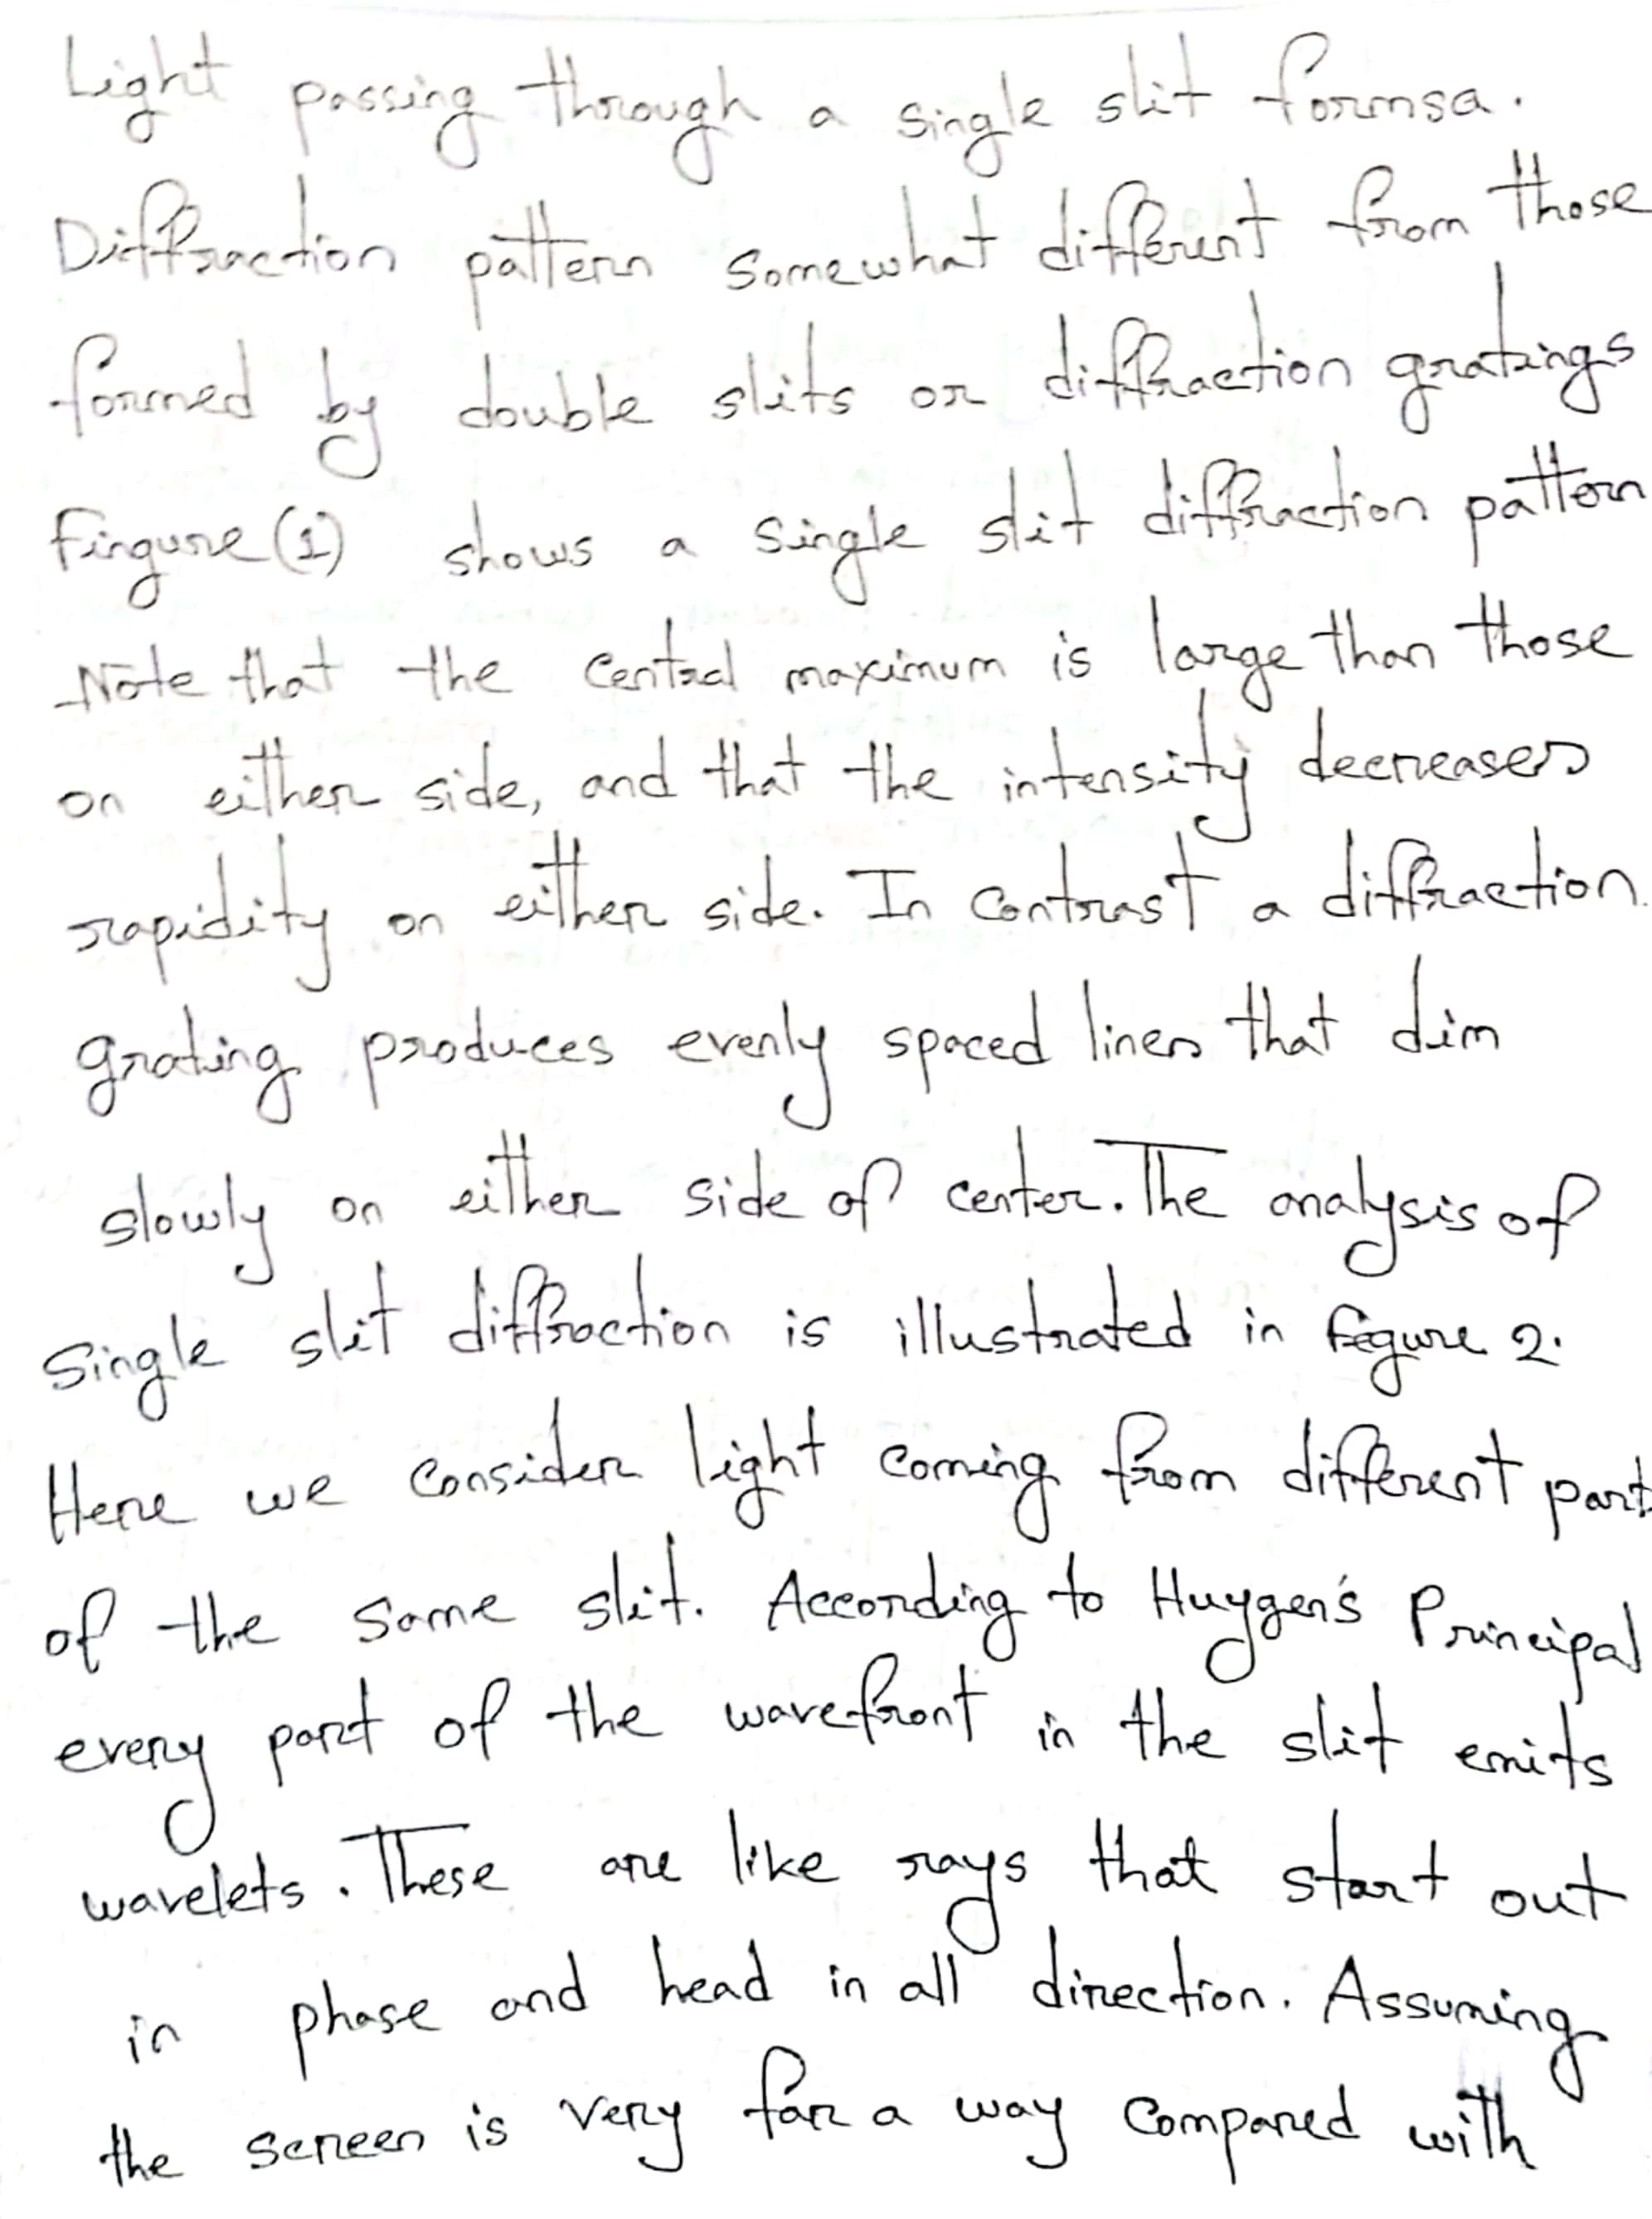 Light passing through a single slit formsa.
Diffraction pattern somewhat different from those
formed by double slits or diffraction gratings
Fingure (1) shows a single slit diffraction pattern
Note that the central maximum is large than those
on either side, and that the intensity decreases
rapidity on either side. In contrast a diffraction
grating produces evenly spaced lines that dim
slowly on either side of center. The analysis of
Single slit diffraction is illustrated in figure 2.
Here we consider light coming from different part
of the same slit. According to Huygen's Principal
every part of the wavefront in the slit emits
wavelets. These are like rays that start out
in phase and head in all direction. Assuming
the screen is very far a way compared with